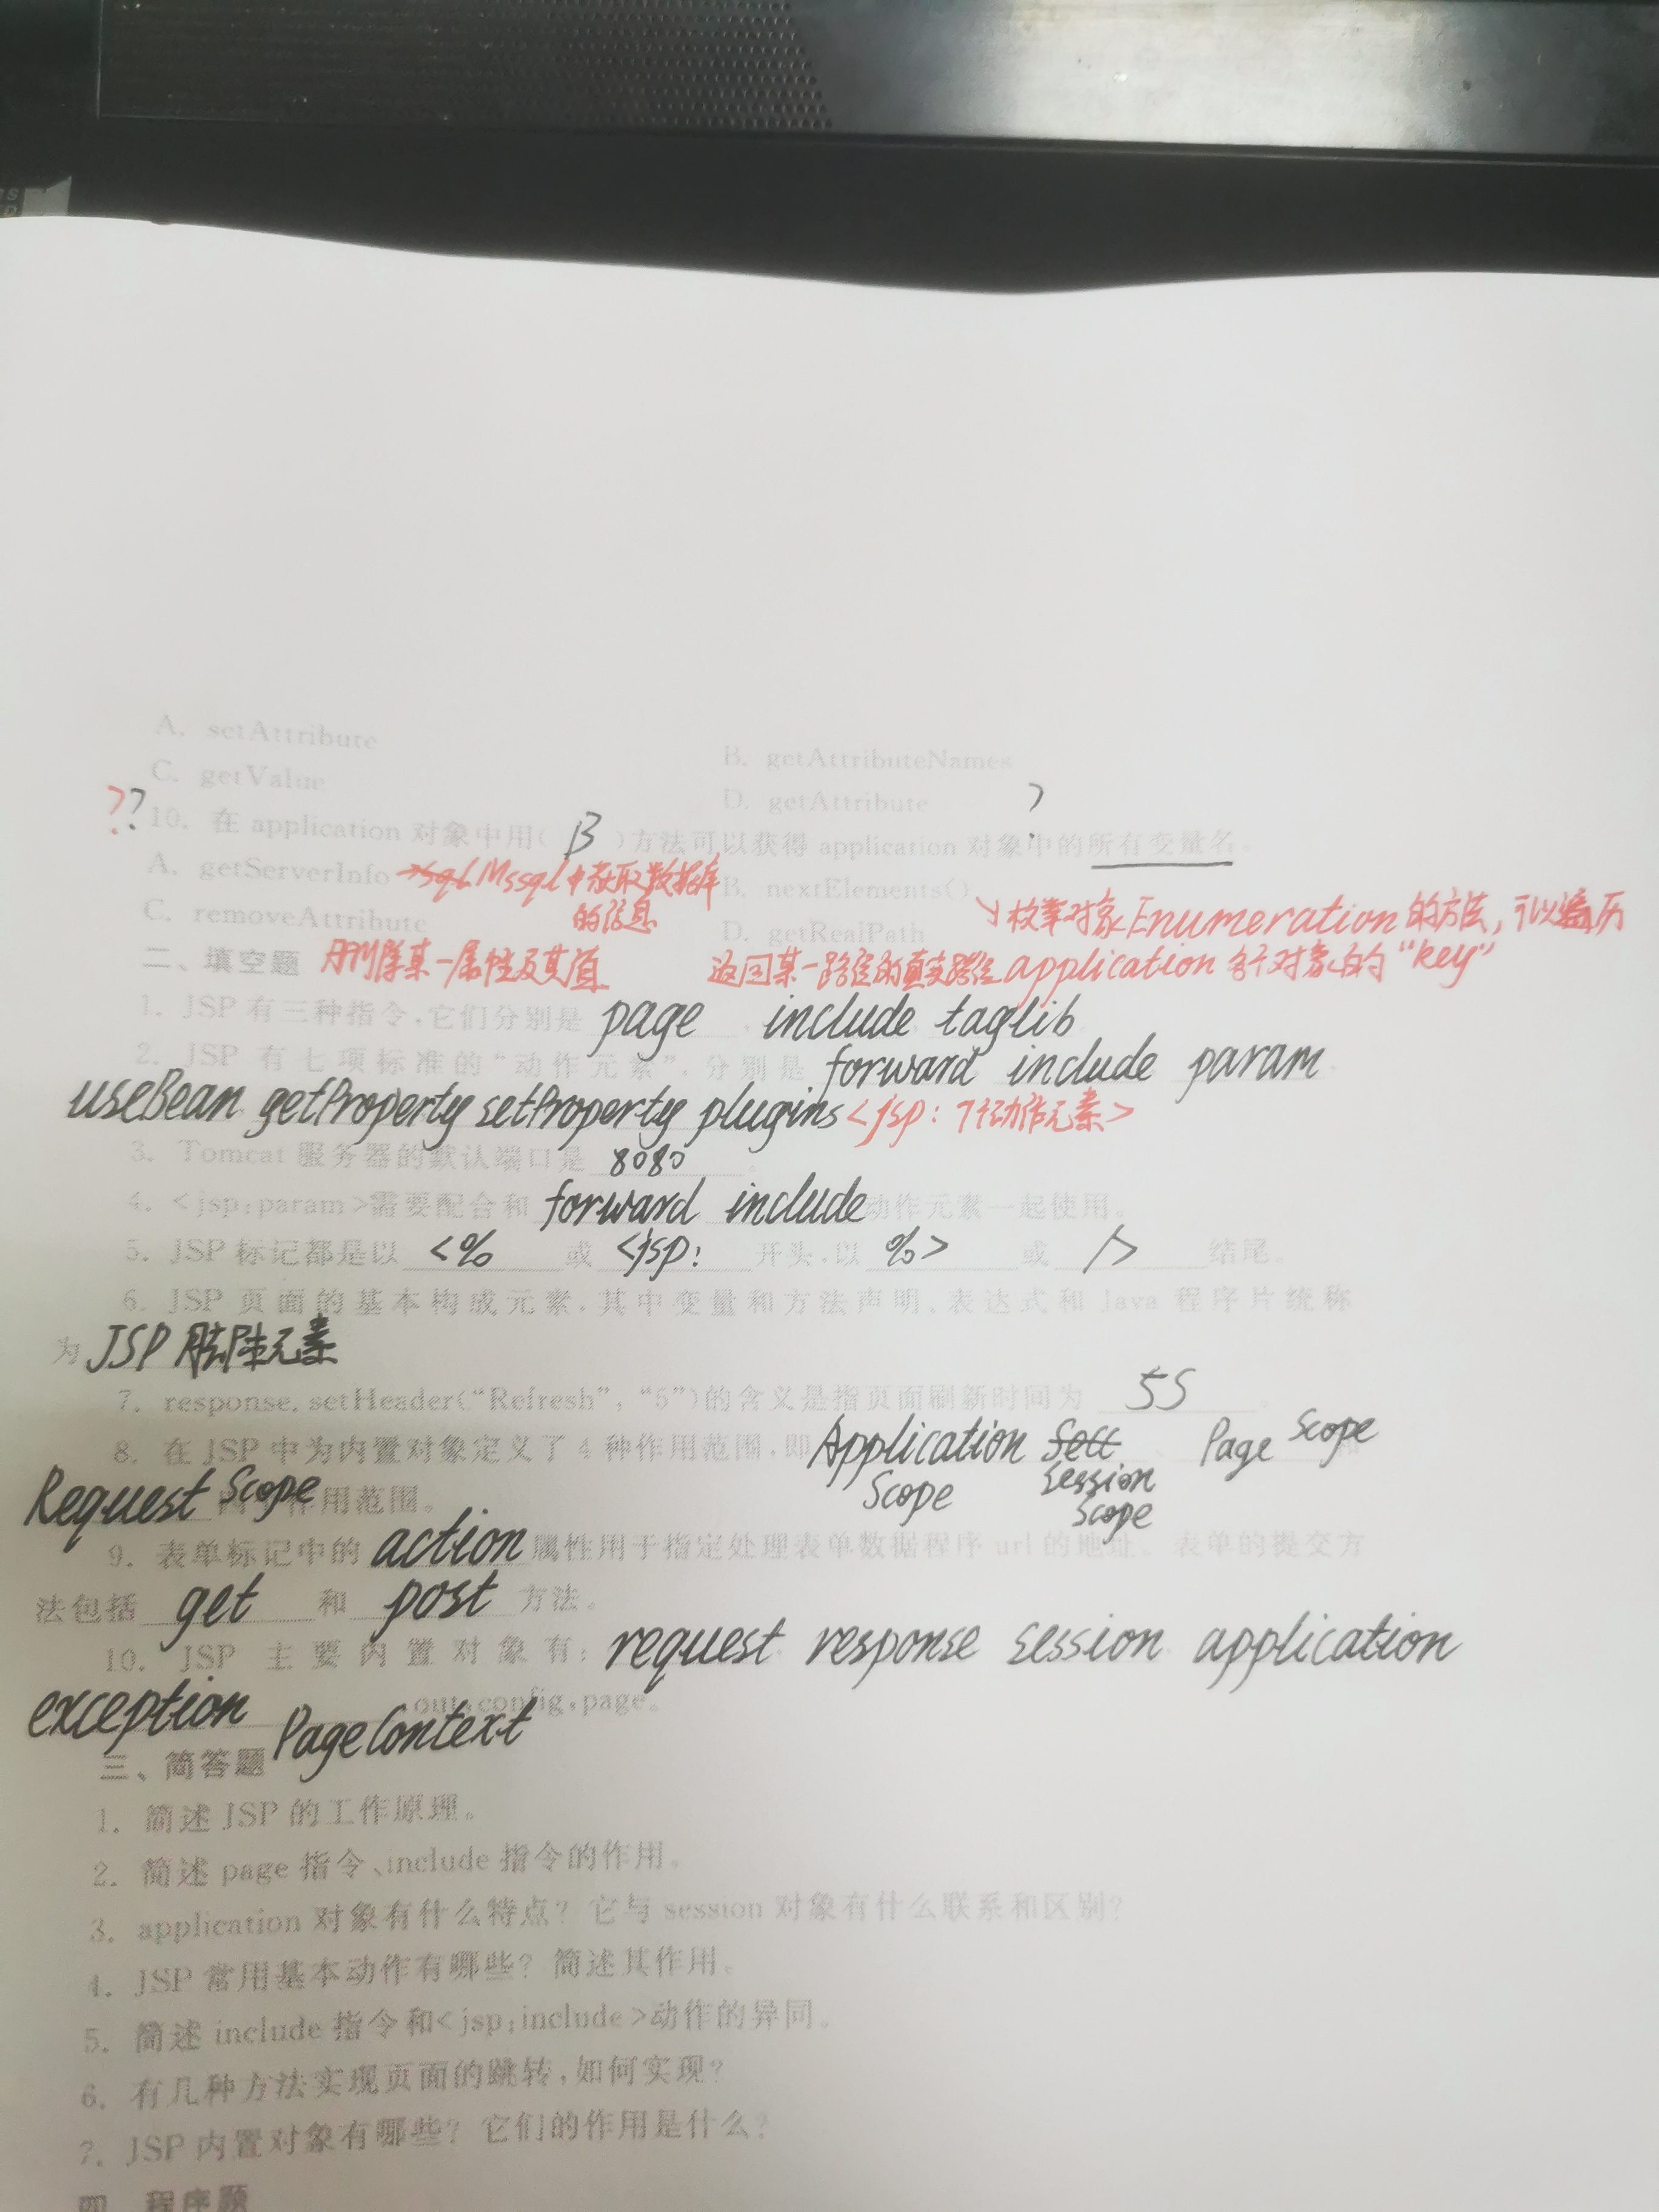 A. setAttribute
B. getAttributeNames
C. getValue
D. getAttribute ?
?? 10. 在 application 对象中用( B )方法可以获得 application 对象中的所有变量名。
A. getServerInfo → Mssql中获取数据库的信息
B. nextElements()
↘枚举对象Enumeration的方法,可以遍历
C. removeAttribute
D. getRealPath
二、填空题 用删除某一属性及其值
返回某一路径的真实路径 application各个对象的“key”
1. JSP 有三种指令,它们分别是 page include taglib
2. JSP 有七项标准的“动作元素”,分别是 forward include param
useBean getProperty setProperty plugins <jsp: 7个动作元素>
3. Tomcat 服务器的默认端口是 8080 。
4. <jsp:param>需要配合和 forward include 动作元素一起使用。
5. JSP 标记都是以 <% 或 <jsp: 开头,以 %> 或 /> 结尾。
6. JSP 页面的基本构成元素,其中变量和方法声明、表达式和 Java 程序片统称
为 JSP 脚本元素
7. response.setHeader("Refresh", "5")的含义是指页面刷新时间为 5S 。
8. 在 JSP 中为内置对象定义了 4 种作用范围,即 Application Scope Session Scope Page Scope 和
Request Scope 作用范围。
9. 表单标记中的 action 属性用于指定处理表单数据程序 url 的地址。表单的提交方
法包括 get 和 post 方法。
10. JSP 主要内置对象有: request response session application
exception PageContext out,config,page。
三、简答题
1. 简述 JSP 的工作原理。
2. 简述 page 指令、include 指令的作用。
3. application 对象有什么特点? 它与 session 对象有什么联系和区别?
4. JSP 常用基本动作有哪些? 简述其作用。
5. 简述 include 指令和<jsp:include>动作的异同。
6. 有几种方法实现页面的跳转,如何实现?
7. JSP 内置对象有哪些? 它们的作用是什么?
四、程序题